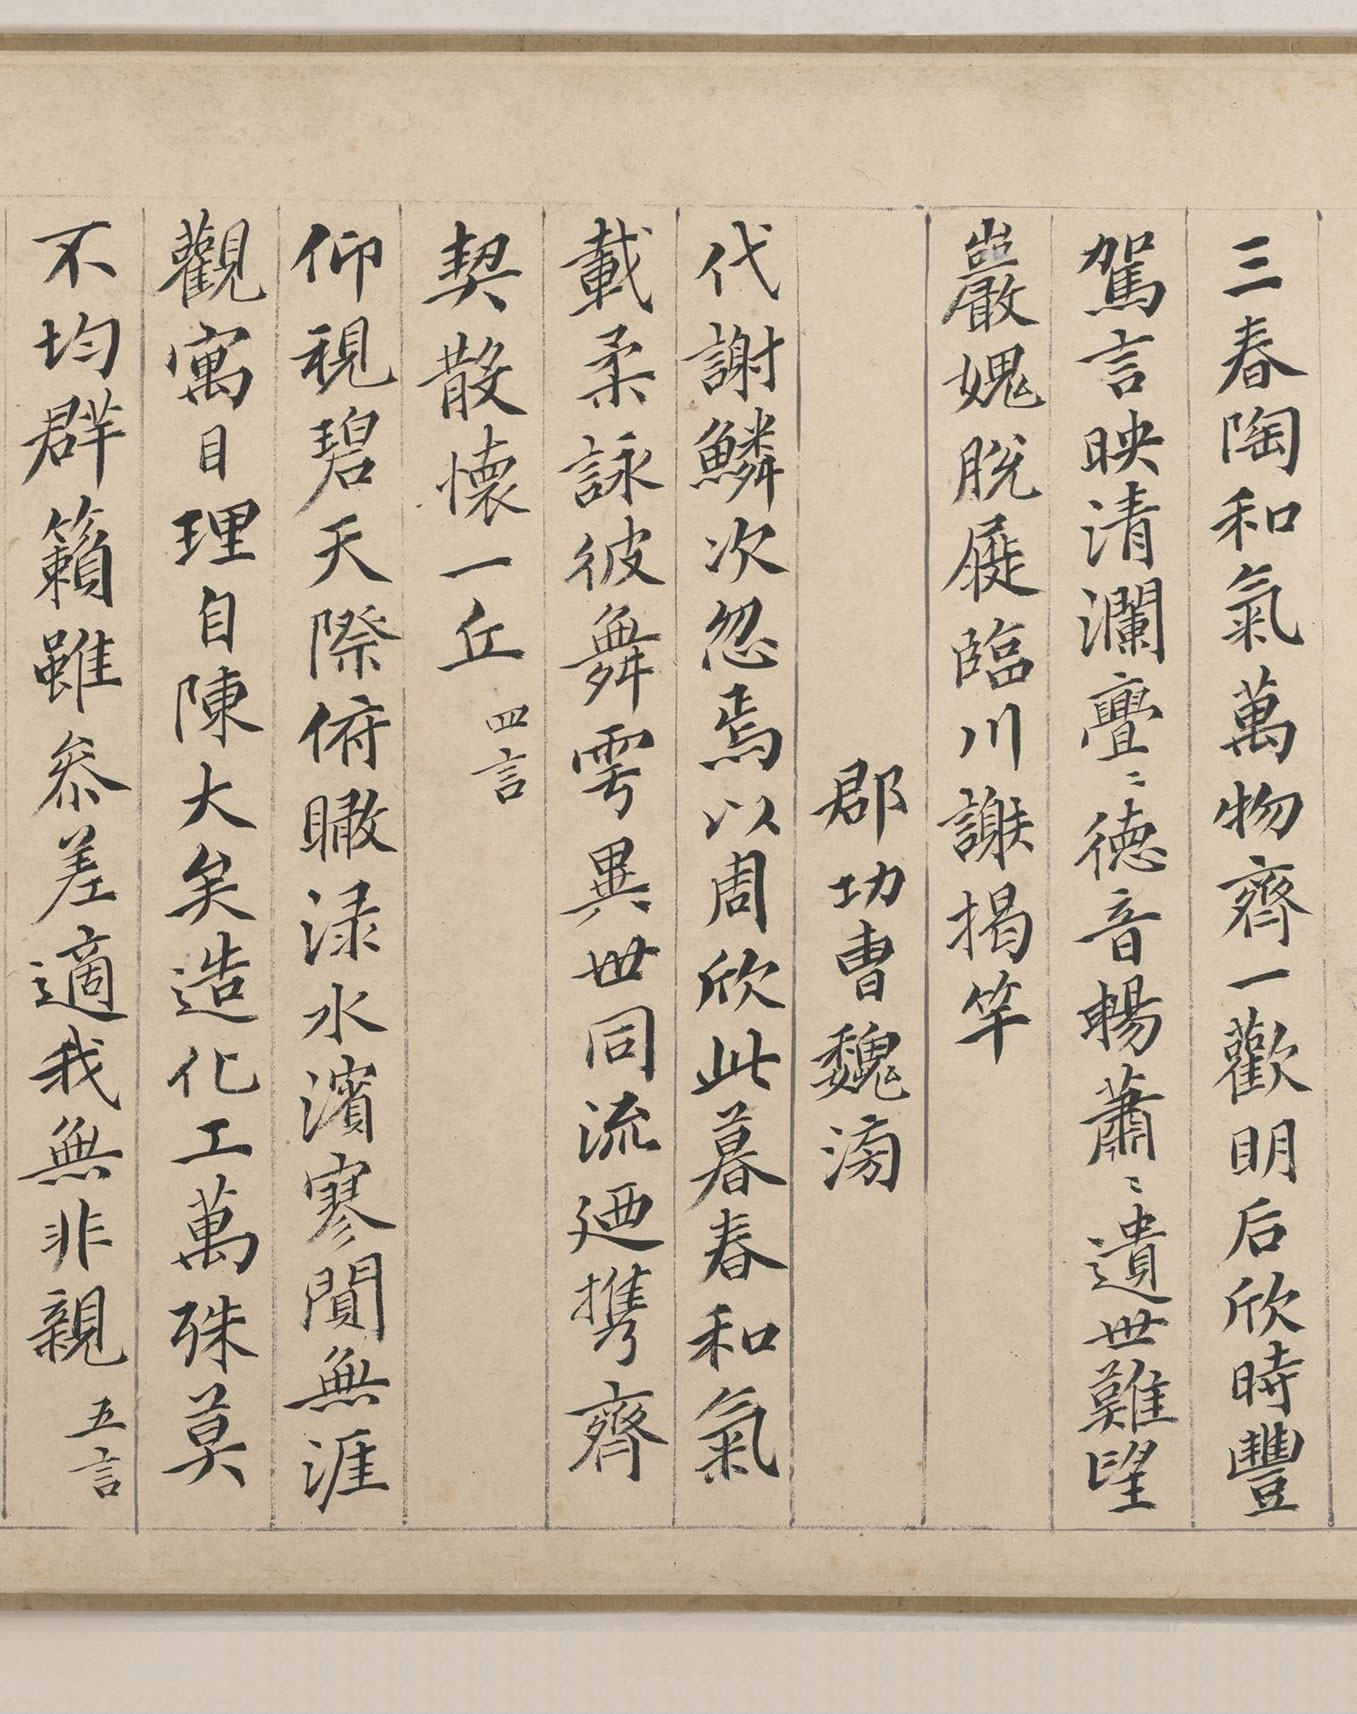 三春陶和氣萬物齊一歡明后欣時豐
駕言映清瀾亹〻德音暢蕭〻遺世難望
巖媿脫屣臨川謝揭竿
郡功曹魏滂
代謝鱗次忽焉以周欣此暮春和氣
載柔詠彼舞雩異世同流迺携齊
契散懷一丘 四言
仰視碧天際俯瞰淥水濱寥閴無涯
觀寓目理自陳大矣造化工萬殊莫
不均群籟雖叅差適我無非親 五言